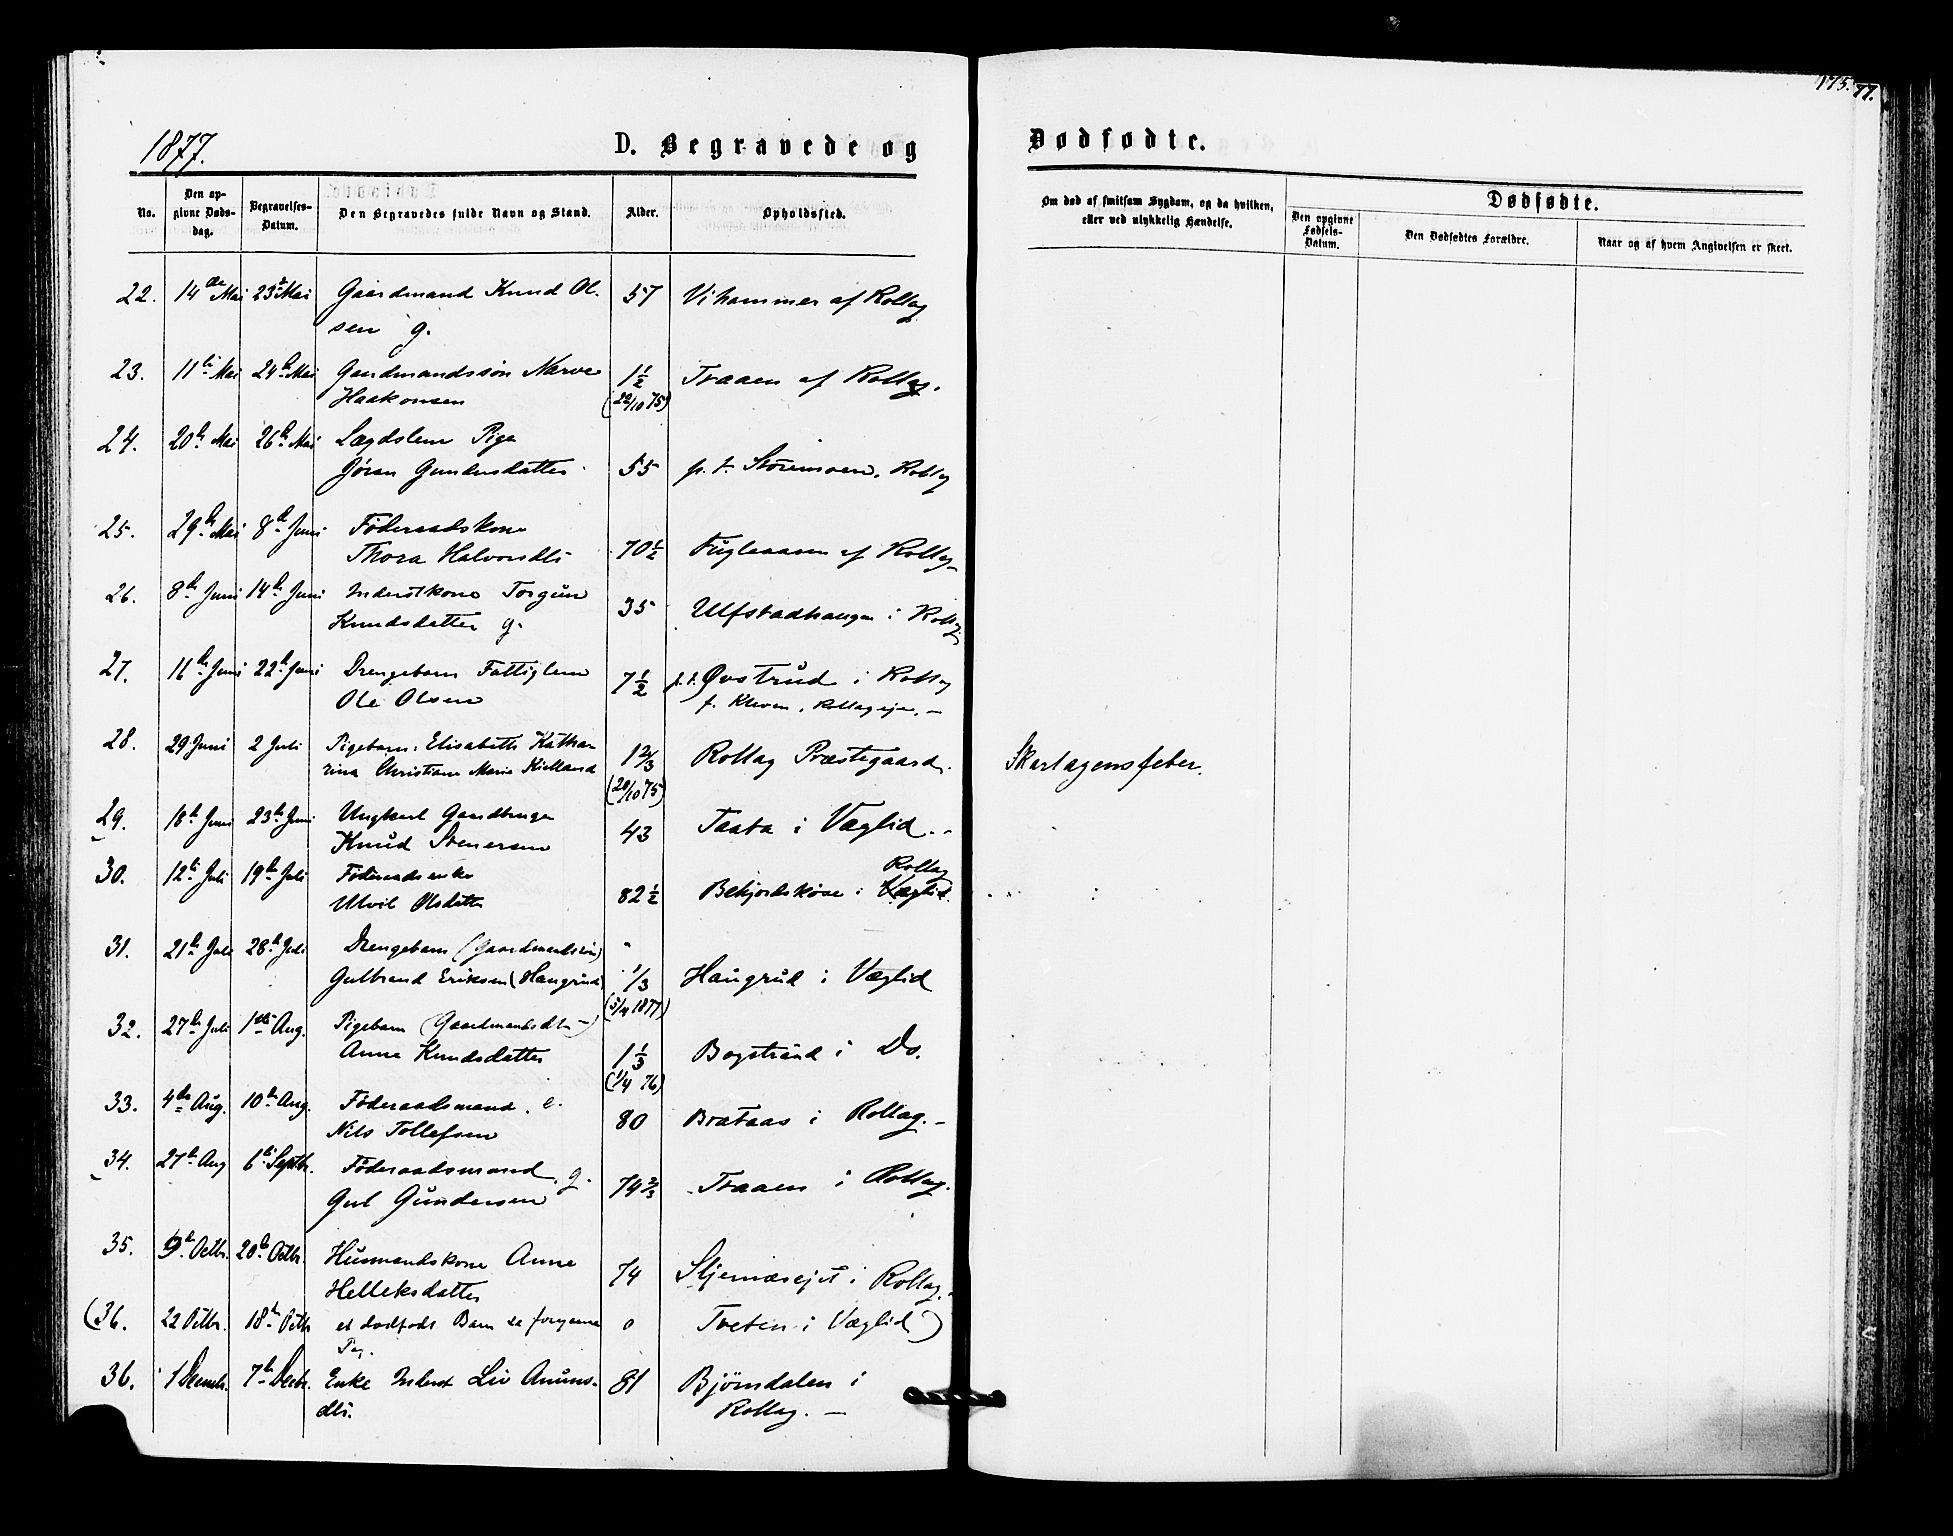 175. 77.
1877.
D. Begravede og
Dødfødte.
No.
Den op-
givne Døds-
dag.
Begravelses-
Datum.
Den Begravedes fulde Navn og Stand.
Alder.
Opholdssted.
Om død af smitsom Sygdom, og da hvilken,
eller ved ulykkelig Hændelse.
Dødfødte.
Den opgivne
Fødsels-
Datum.
Den Dødfødtes Forældre.
Naar og af hvem Angivelsen er skeet.
22. 14de Mai 23de Mai Gaardmand Knud Ol- 57 Vihammer af Rollag
sen g.
23. 11te Mai 24de Mai Gaardmandssøn Narve 1 1/2 Traaen af Rollag.
Haakonsen (22/10 75)
24. 20de Mai 26de Mai Lægdslem Pige
Jøran Gundersdatter 55 p. t. Störemoen. Rollag
25. 29de Mai 8de Juni Föderaadskone
Thora Halvorsdtr 70 1/2 Fugleaasen af Rollag
26. 8de Juni 14de Juni Inderstkone Torgün 35 Ulfstadhaugen i Rollag
Knudsdatter g.
27. 16de Juni 22de Juni Drengebarn Fattiglem 7 1/2 p.t. Øvstrud i Rollag
Ole Olsen f. Kleven, Rollagseje. —
28. 29 Juni 2 Juli Pigebarn: Elisabeth Katha- 1 2/3 Rollag Præstegaard. Skarlagensfeber.
rina Christiane Marie Kielland (20/10 75)
29. 18de Juni 23de Juni Ungkarl Gaardbruger
Knud Stenersen 43 Taata i Væglid.
30. 12te Juli 19de Juli Föderaadsenke Rollag
Ulvil Olsdatter 82 1/2 Bekjordsköse i Væglid.
31. 21de Juli 28de Juli Drengebarn (Gaardmandssön) "
Gulbrand Eriksen (Haugrud) 1/3 Haugrud i Væglid
(5/4 1877)
32. 27de Juli 1ste Aug. Pigebarn (Gaardmandsdtr)
Anne Knudsdatter 1 1/3 Bogstrand i Do.
(1/4 76)
33. 4de Aug. 10de Aug. Föderaadsmand. e.
Nils Tollefsen 80 Brataas i Rollag. —
34. 27de Aug 6te Septbr. Föderaadsmand g.
Gul Gundersen 74 2/3 Traaen i Rollag.
35. 9de Octbr. 20de Octbr. Husmandskone Anne
Helleksdatter 74 Stjernæsejet i Rollag.
(36. 22 Octbr. 18de Octbr et dødfødt Barn se forgaaende 0 Tveten i Væglid)
Pag.
36. 1 Decmbr. 7de Decbr. Enke Inderst Liv Anuns- 81 Bjørndalen i
dtr. Rollag. —